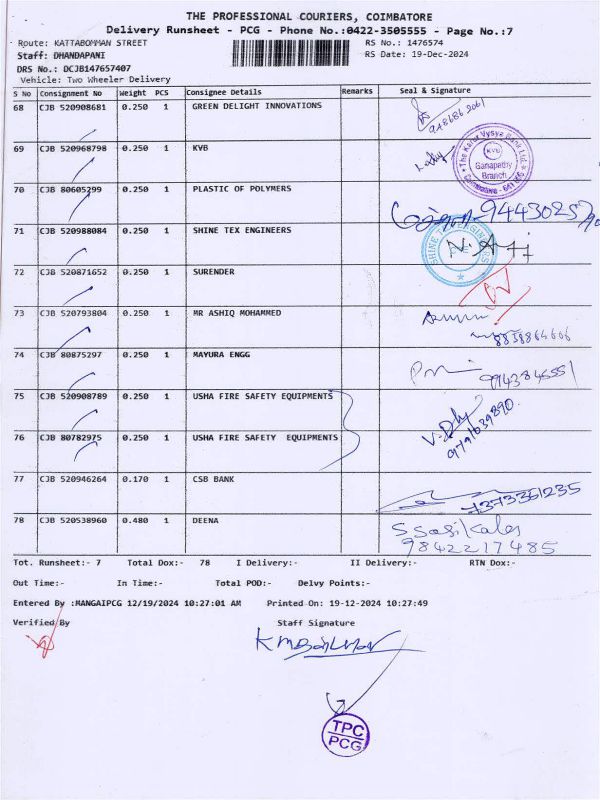 THE PROFESSIONAL COURIERS, COIMBATORE
Delivery Runsheet - PCG - Phone No.:0422-3505555 - Page No.:7
Route: KATTABOMMAN STREET
RS No.: 1476574
Staff: DHANDAPANI
RS Date: 19-Dec-2024
DRS No.: DCJB147657407
Vehicle: Two Wheeler Delivery
S No Consignment No Weight PCS Consignee Details Remarks Seal & Signature
68 CJB 520908681 0.250 1 GREEN DELIGHT INNOVATIONS
69 CJB 520968798 0.250 1 KVB
The Karur Vysya Bank Ltd.
KVB
Ganapathy
Branch
70 CJB 80605299 0.250 1 PLASTIC OF POLYMERS
71 CJB 520988084 0.250 1 SHINE TEX ENGINEERS
SHINE TEX ENGINEERS
72 CJB 520871652 0.250 1 SURENDER
73 CJB 520793804 0.250 1 MR ASHIQ MOHAMMED
8838864606
74 CJB 80875297 0.250 1 MAYURA ENGG
75 CJB 520908789 0.250 1 USHA FIRE SAFETY EQUIPMENTS
76 CJB 80782975 0.250 1 USHA FIRE SAFETY EQUIPMENTS
9791639890
77 CJB 520946264 0.170 1 CSB BANK
7373351235
78 CJB 520538960 0.480 1 DEENA
S Sasikala
9842217485
Tot. Runsheet:- 7 Total Dox:- 78 I Delivery:- II Delivery:- RTN Dox:-
Out Time:- In Time:- Total POD:- Delvy Points:-
Entered By :MANGAIPCG 12/19/2024 10:27:01 AM Printed On: 19-12-2024 10:27:49
Verified By Staff Signature
TPC
PCG